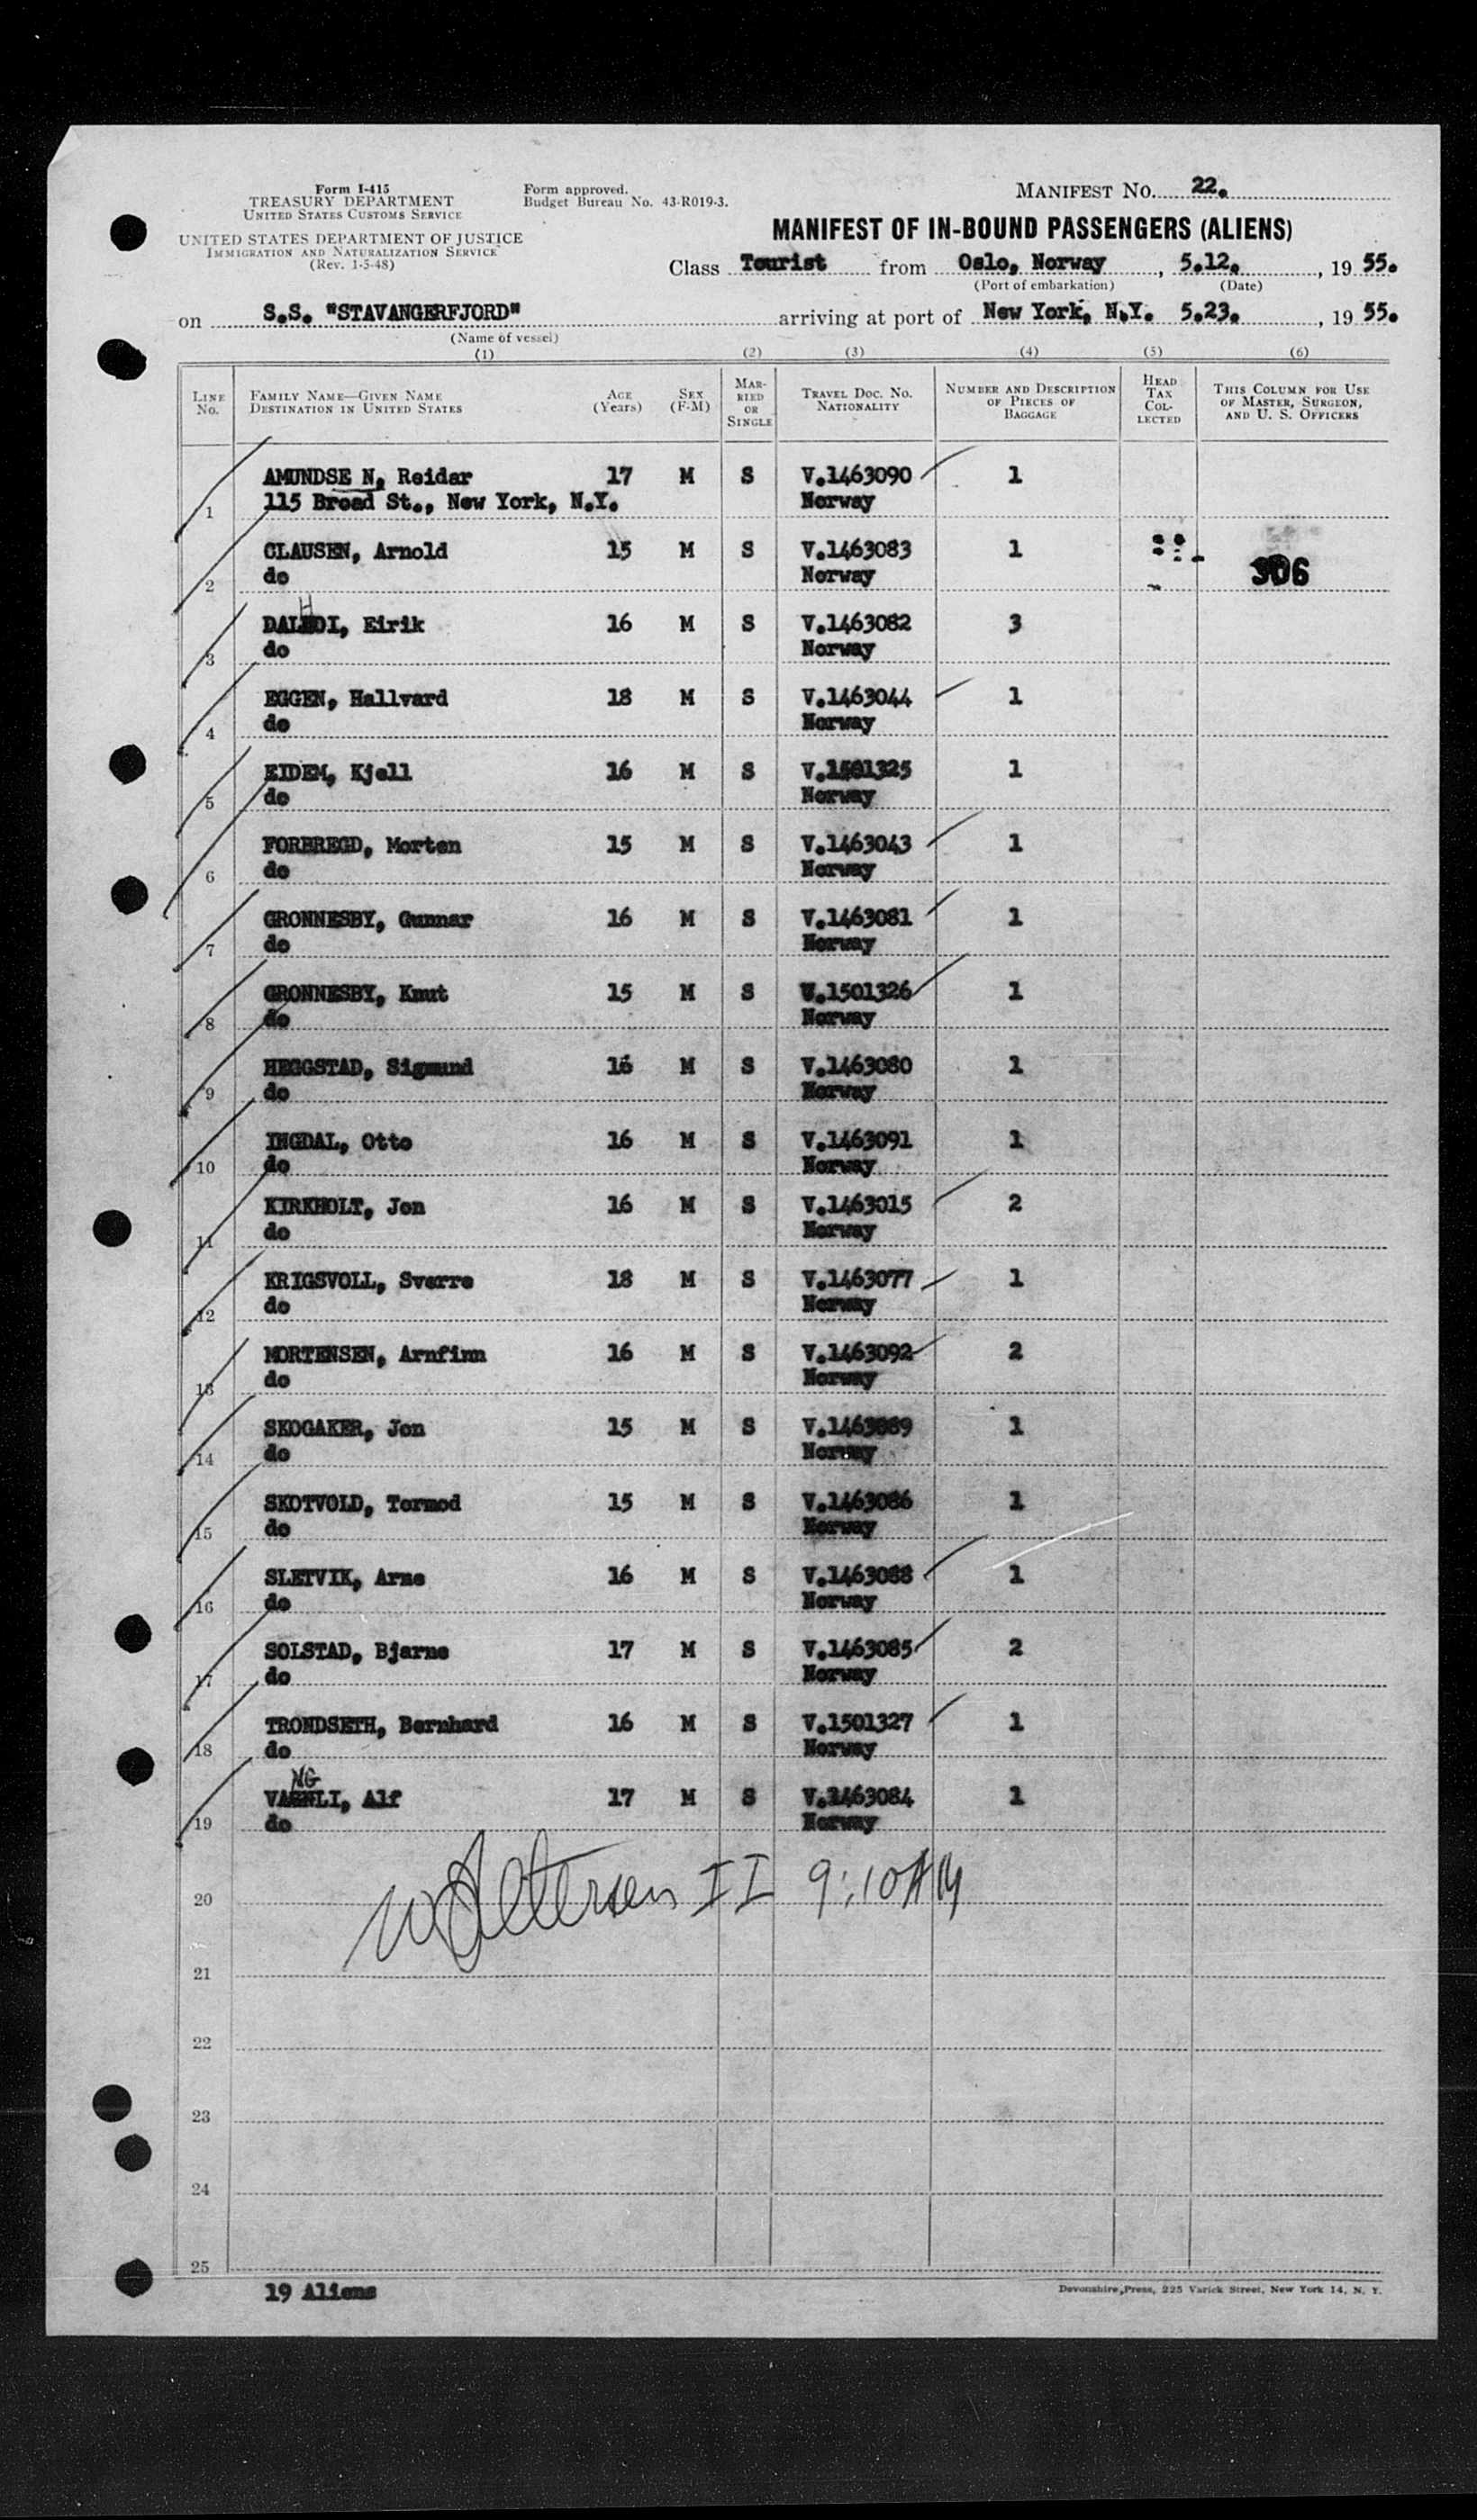 Form I-415
TREASURY DEPARTMENT
UNITED STATES CUSTOMS SERVICE
UNITED STATES DEPARTMENT OF JUSTICE
IMMIGRATION AND NATURALIZATION SERVICE
(Rev. 1-5-48)
Form approved.
Budget Bureau No. 43-R019-3.
MANIFEST NO. 22.
MANIFEST OF IN-BOUND PASSENGERS (ALIENS)
Class Tourist from Oslo, Norway, 5.12., 19 55.
(Port of embarkation) (Date)
on S.S. "STAVANGERFJORD" arriving at port of New York, N.Y. 5.23., 19 55.
(Name of vessel)
(1) (2) (3) (4) (5) (6)
LINE No. FAMILY NAME—GIVEN NAME DESTINATION IN UNITED STATES AGE (Years) SEX (F-M) MARRIED OR SINGLE TRAVEL DOC. NO. NATIONALITY NUMBER AND DESCRIPTION OF PIECES OF BAGGAGE HEAD TAX COLLECTED THIS COLUMN FOR USE OF MASTER, SURGEON, AND U. S. OFFICERS
AMUNDSE N, Reidar 17 M S V.1463090 1
1 115 Broad St., New York, N.Y. Norway
CLAUSEN, Arnold 15 M S V.1463083 1
2 do Norway 306
H
DALHOI, Eirik 16 M S V.1463082 3
3 do Norway
EGGEN, Hallvard 18 M S V.1463044 1
4 do Norway
EIDEM, Kjell 16 M S V.1501325 1
5 do Norway
FORBREGD, Morten 15 M S V.1463043 1
6 do Norway
GRONNESBY, Gunnar 16 M S V.1463081 1
7 do Norway
GRONNESBY, Knut 15 M S V.1501326 1
8 do Norway
HEGGSTAD, Sigmund 16 M S V.1463080 1
9 do Norway
INGDAL, Otto 16 M S V.1463091 1
10 do Norway
KIRKHOLT, Jon 16 M S V.1463015 2
11 do Norway
KRIGSVOLL, Sverre 18 M S V.1463077 1
12 do Norway
MORTENSEN, Arnfinn 16 M S V.1463092 2
13 do Norway
SKOGAKER, Jon 15 M S V.1463089 1
14 do Norway
SKOTVOLD, Tormod 15 M S V.1463086 1
15 do Norway
SLETVIK, Arne 16 M S V.1463088 1
16 do Norway
SOLSTAD, Bjarne 17 M S V.1463085 2
17 do Norway
TRONDSETH, Bernhard 16 M S V.1501327 1
18 do Norway
NG
Alf 17 M S V.1463084 1
19 do Norway
20 II 9:10 AM
21
22
23
24
25
19 Aliens
Devonshire Press, 225 Varick Street, New York 14, N. Y.